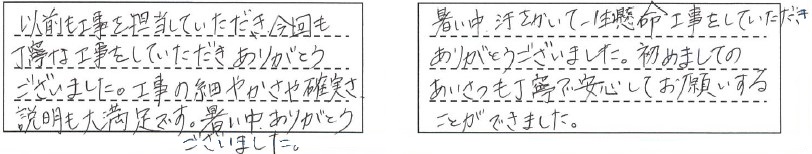 以前も工事を担当していただき、今回も
丁寧な工事をしていただきありがとう
ございました。工事の細やかさや確実さ、
説明も大満足です。暑い中ありがとう
ございました。
暑い中、汗をかいて一生懸命工事をしていただき
ありがとうございました。初めましての
あいさつも丁寧で安心してお願いする
ことができました。